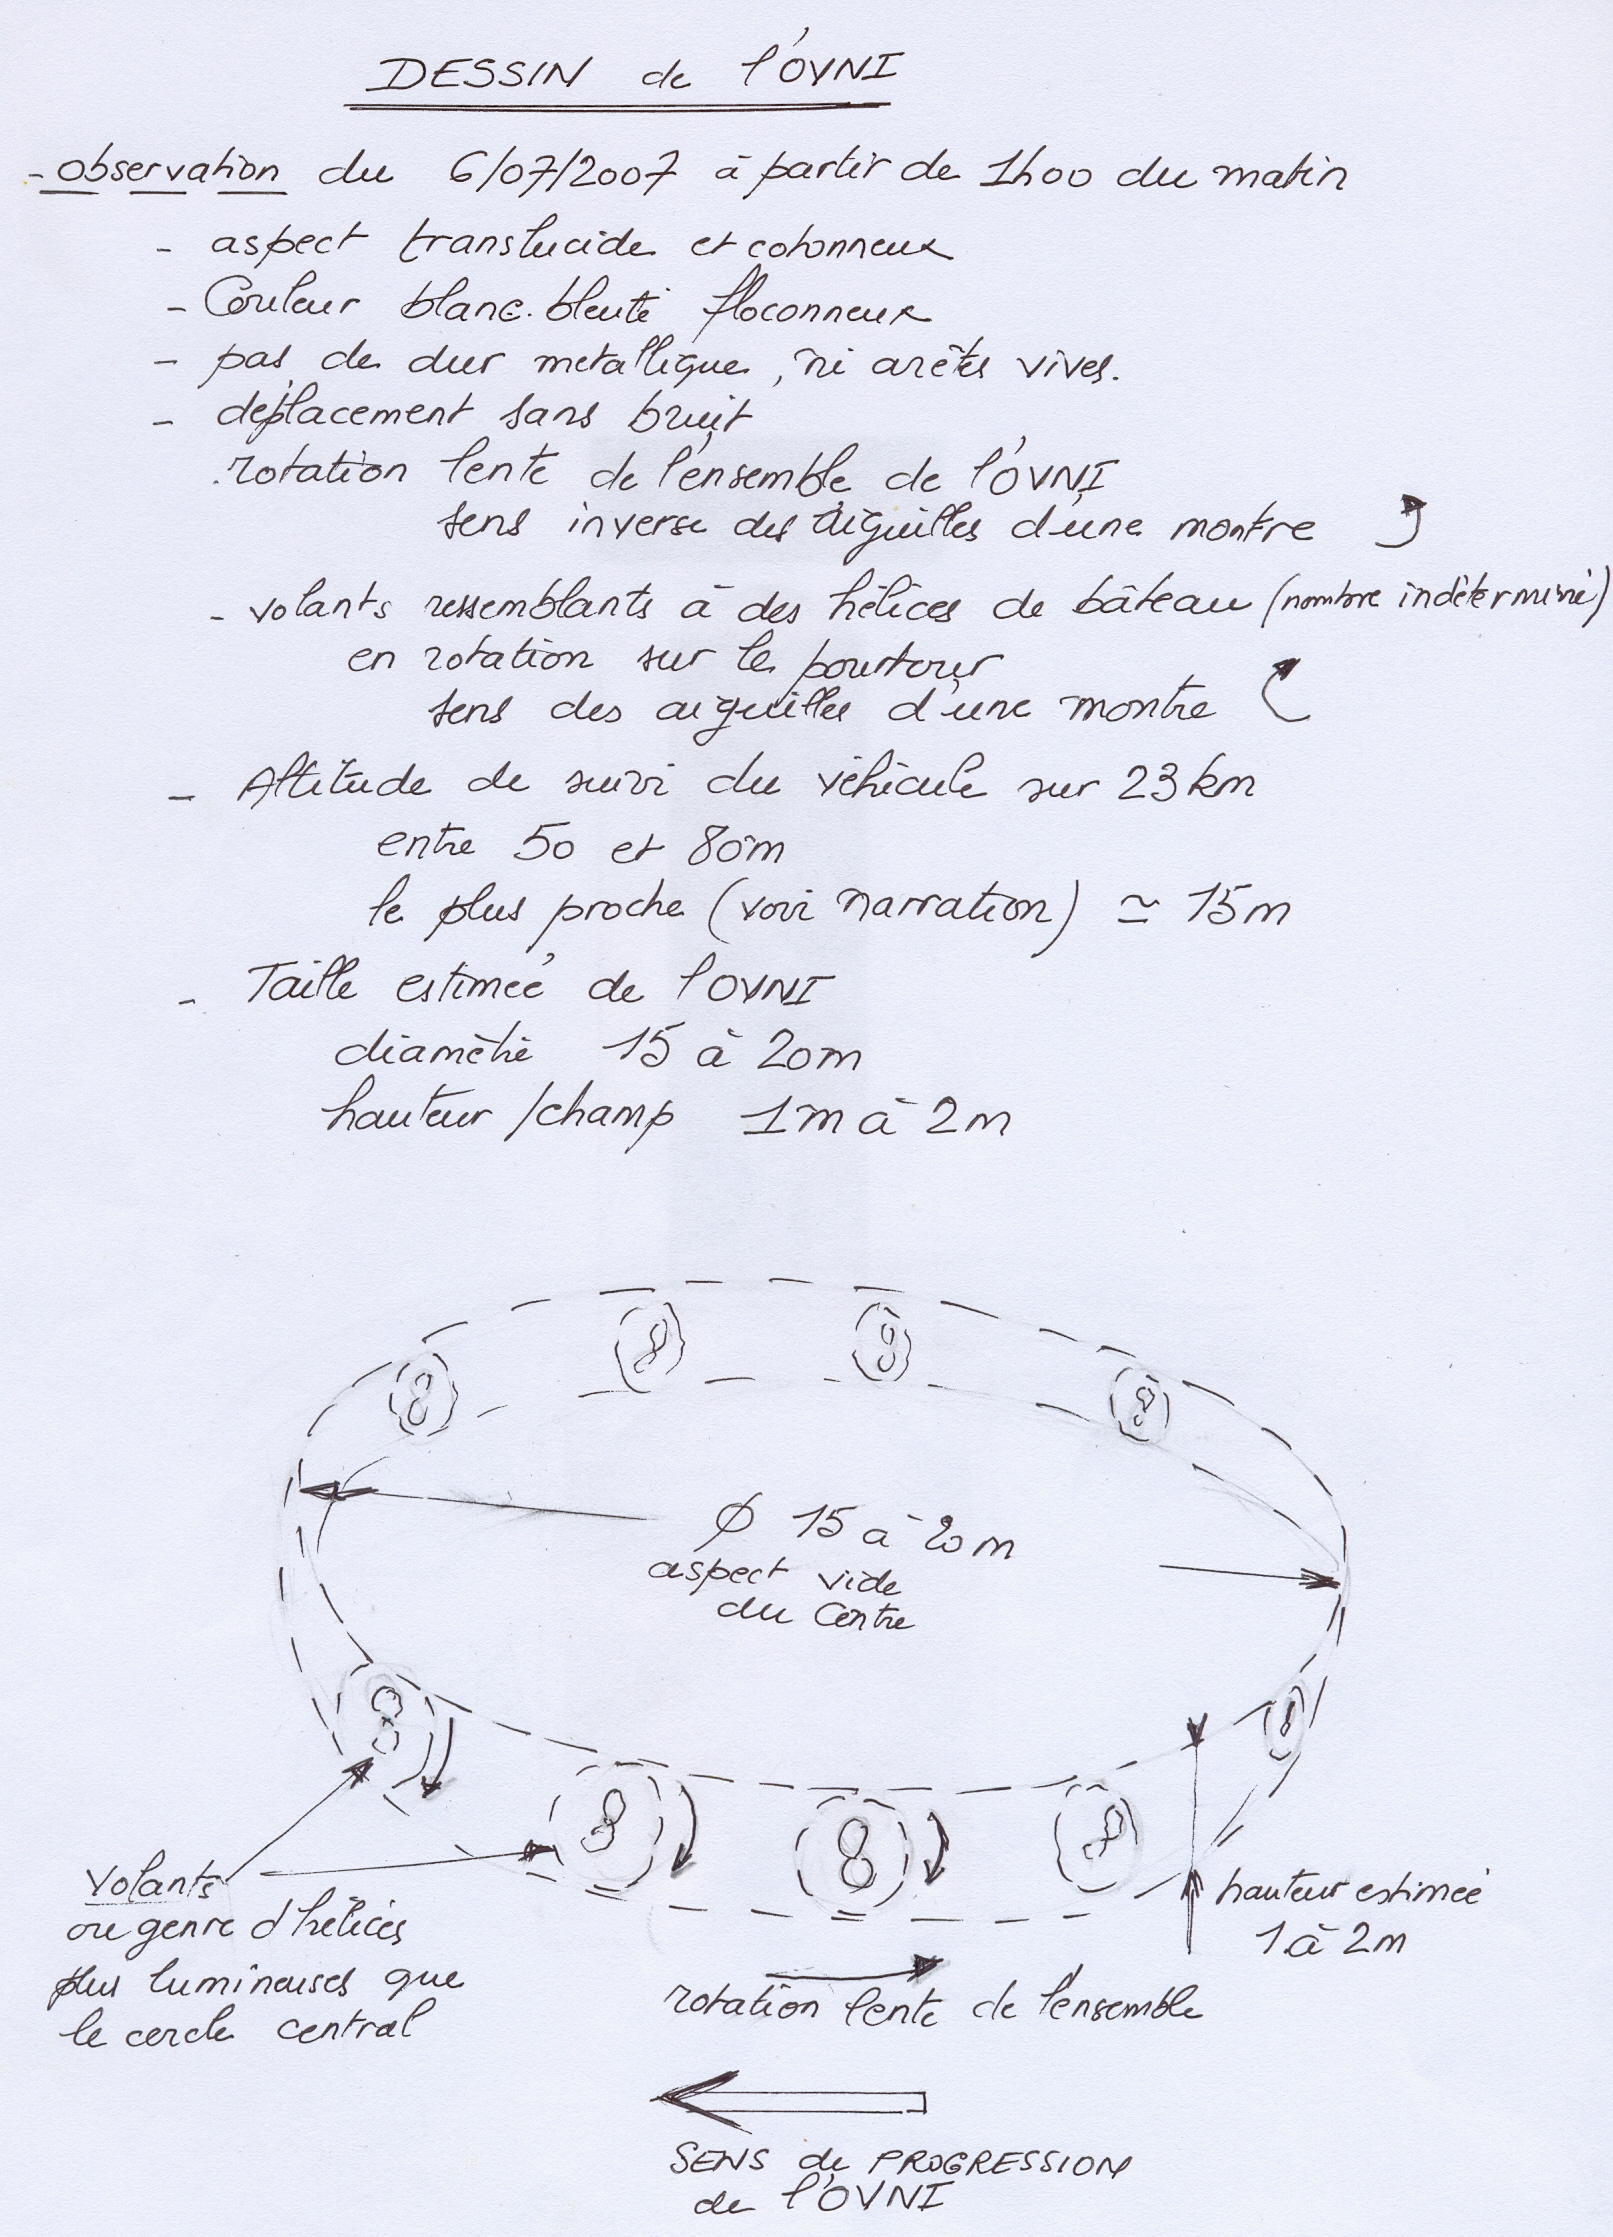 DESSIN de l'OVNI
- observation du 6/07/2007 à partir de 1h00 du matin
- aspect translucide et cotonneux
- Couleur blanc-bleuté floconneux
- pas de dur metallique, ni arêtes vives.
- déplacement sans bruit
rotation lente de l'ensemble de l'OVNI
sens inverse des aiguilles d'une montre
- volants ressemblants à des hélices de bâteau (nombre indéterminé)
en rotation sur le pourtour
sens des aiguilles d'une montre
- Altitude de suivi du véhicule sur 23 km
entre 50 et 80m
le plus proche (voir narration) ≃ 15m
- Taille estimée de l'OVNI
diamètre 15 à 20m
hauteur /champ 1m à 2m
8 8 8 8
Ø 15 à 20m
aspect vide
du centre
8 8 8 8 8
volants
ou genre d'hélices
plus lumineuses que
le cercle central
hauteur estimée
1 à 2m
rotation lente de l'ensemble
SENS de PROGRESSION
de l'OVNI